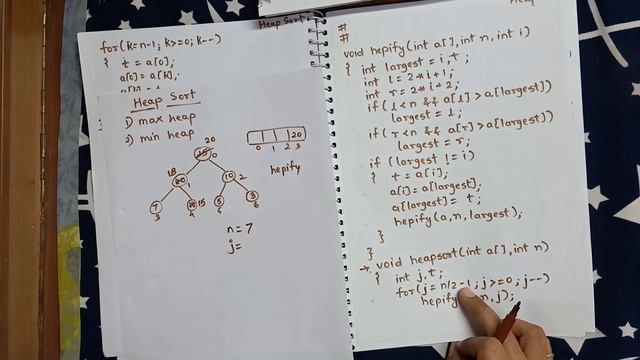 Heap Sort
for(k=n-1; k>=0; k--)
{ t = a[0];
a[0] = a[k];
Heap Sort
1) max heap
2) min heap
20
0
20
0 1 2 3
hepify
18
20
1
10
2
7
3
15
4
5
4
3
6
n = 7
j =
#
#
void hepify(int a[], int n, int i)
{ int largest = i, t;
int l = 2*i+1;
int r = 2*i+2;
if(l<n && a[l]>a[largest])
largest = l;
if(r<n && a[r]>a[largest])
largest = r;
if (largest != i)
{ t = a[i];
a[i] = a[largest];
a[largest] = t;
hepify(a,n,largest);
}
}
→ void heapsort(int a[], int n)
{ int j,t;
for(j=n/2-1; j>=0; j--)
hepify n,j);